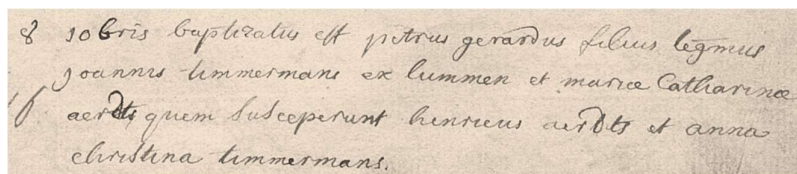 8 10bris baptizatus est petrus gerardus filius legmus
Joannis timmermans ex lummen et mariæ Catharinæ
aerdts, quem susceperunt henricus aerdts et anna
christina timmermans.